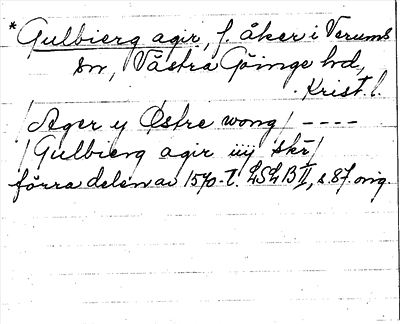 *Gulbierg agir, f. åker i Verums
sn, Västra Göinge hd,
Krist. l.
/Ager y Østre wong/ ----
/Gulbierg agir iiij skr/
förra delen av 1570-t. LSLB II, s 87. orig.